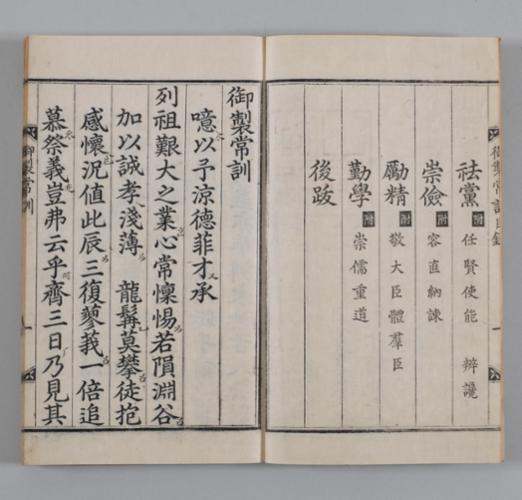 御製常訓目錄
一
祛黨 附 任賢使能 辨讒
崇儉 附 容直納諫
勵精 附 敬大臣體羣臣
勤學 附 崇儒重道
後跋
御製常訓
噫以予涼德菲才承
列祖艱大之業心常懍惕若隕淵谷
加以誠孝淺薄 龍髯莫攀徒抱
感懷況值此辰三復蓼莪一倍追
慕祭義豈弗云乎齊三日乃見其
御製常訓
一